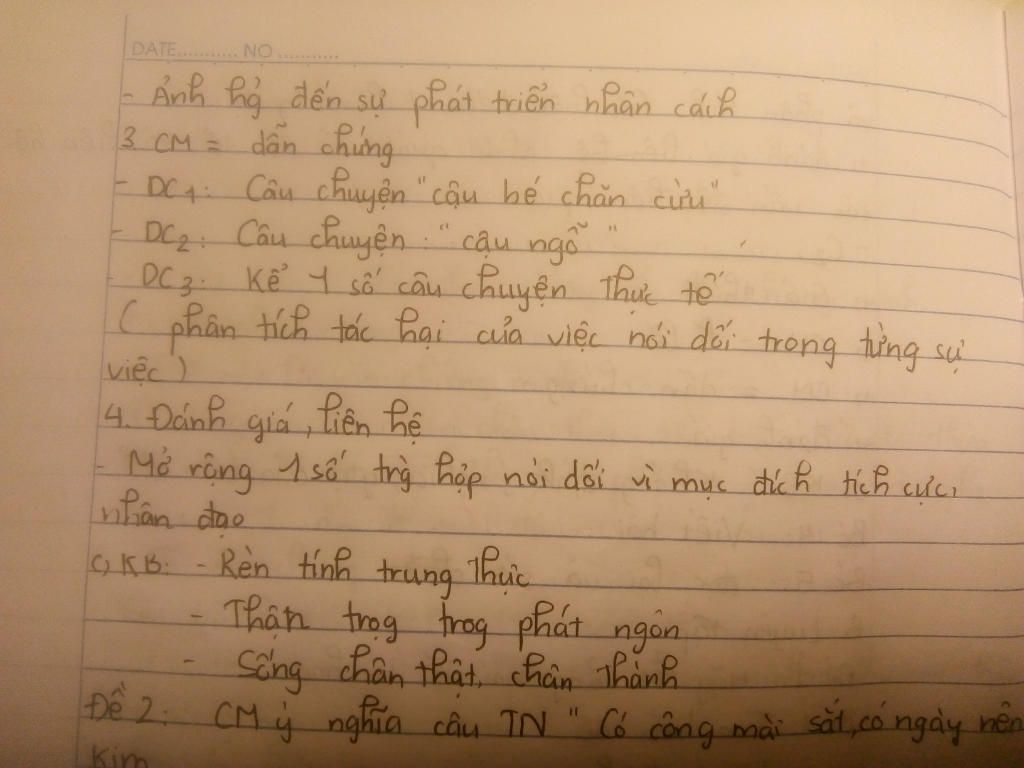 DATE........... NO ...........
- Ảnh hg̉ đến sự phát triển nhân cách
3. CM = dẫn chứng
- DC1: Câu chuyện "cậu bé chăn cừu"
- DC2: Câu chuyện: "cậu ngỗ"
- DC3: Kể 1 số câu chuyện thực tế
( phân tích tác hại của việc nói dối trong từng sự
việc )
4. Đánh giá, liên hệ
- Mở rộng 1 số trg̀ hợp nói dối vì mục đích tích cực,
nhân đạo
C, KB: - Rèn tính trung thực
- Thận trọg trog phát ngôn
- Sống chân thật, chân thành
Đề 2: CM ý nghĩa câu TN " Có công mài sắt, có ngày nên
kim